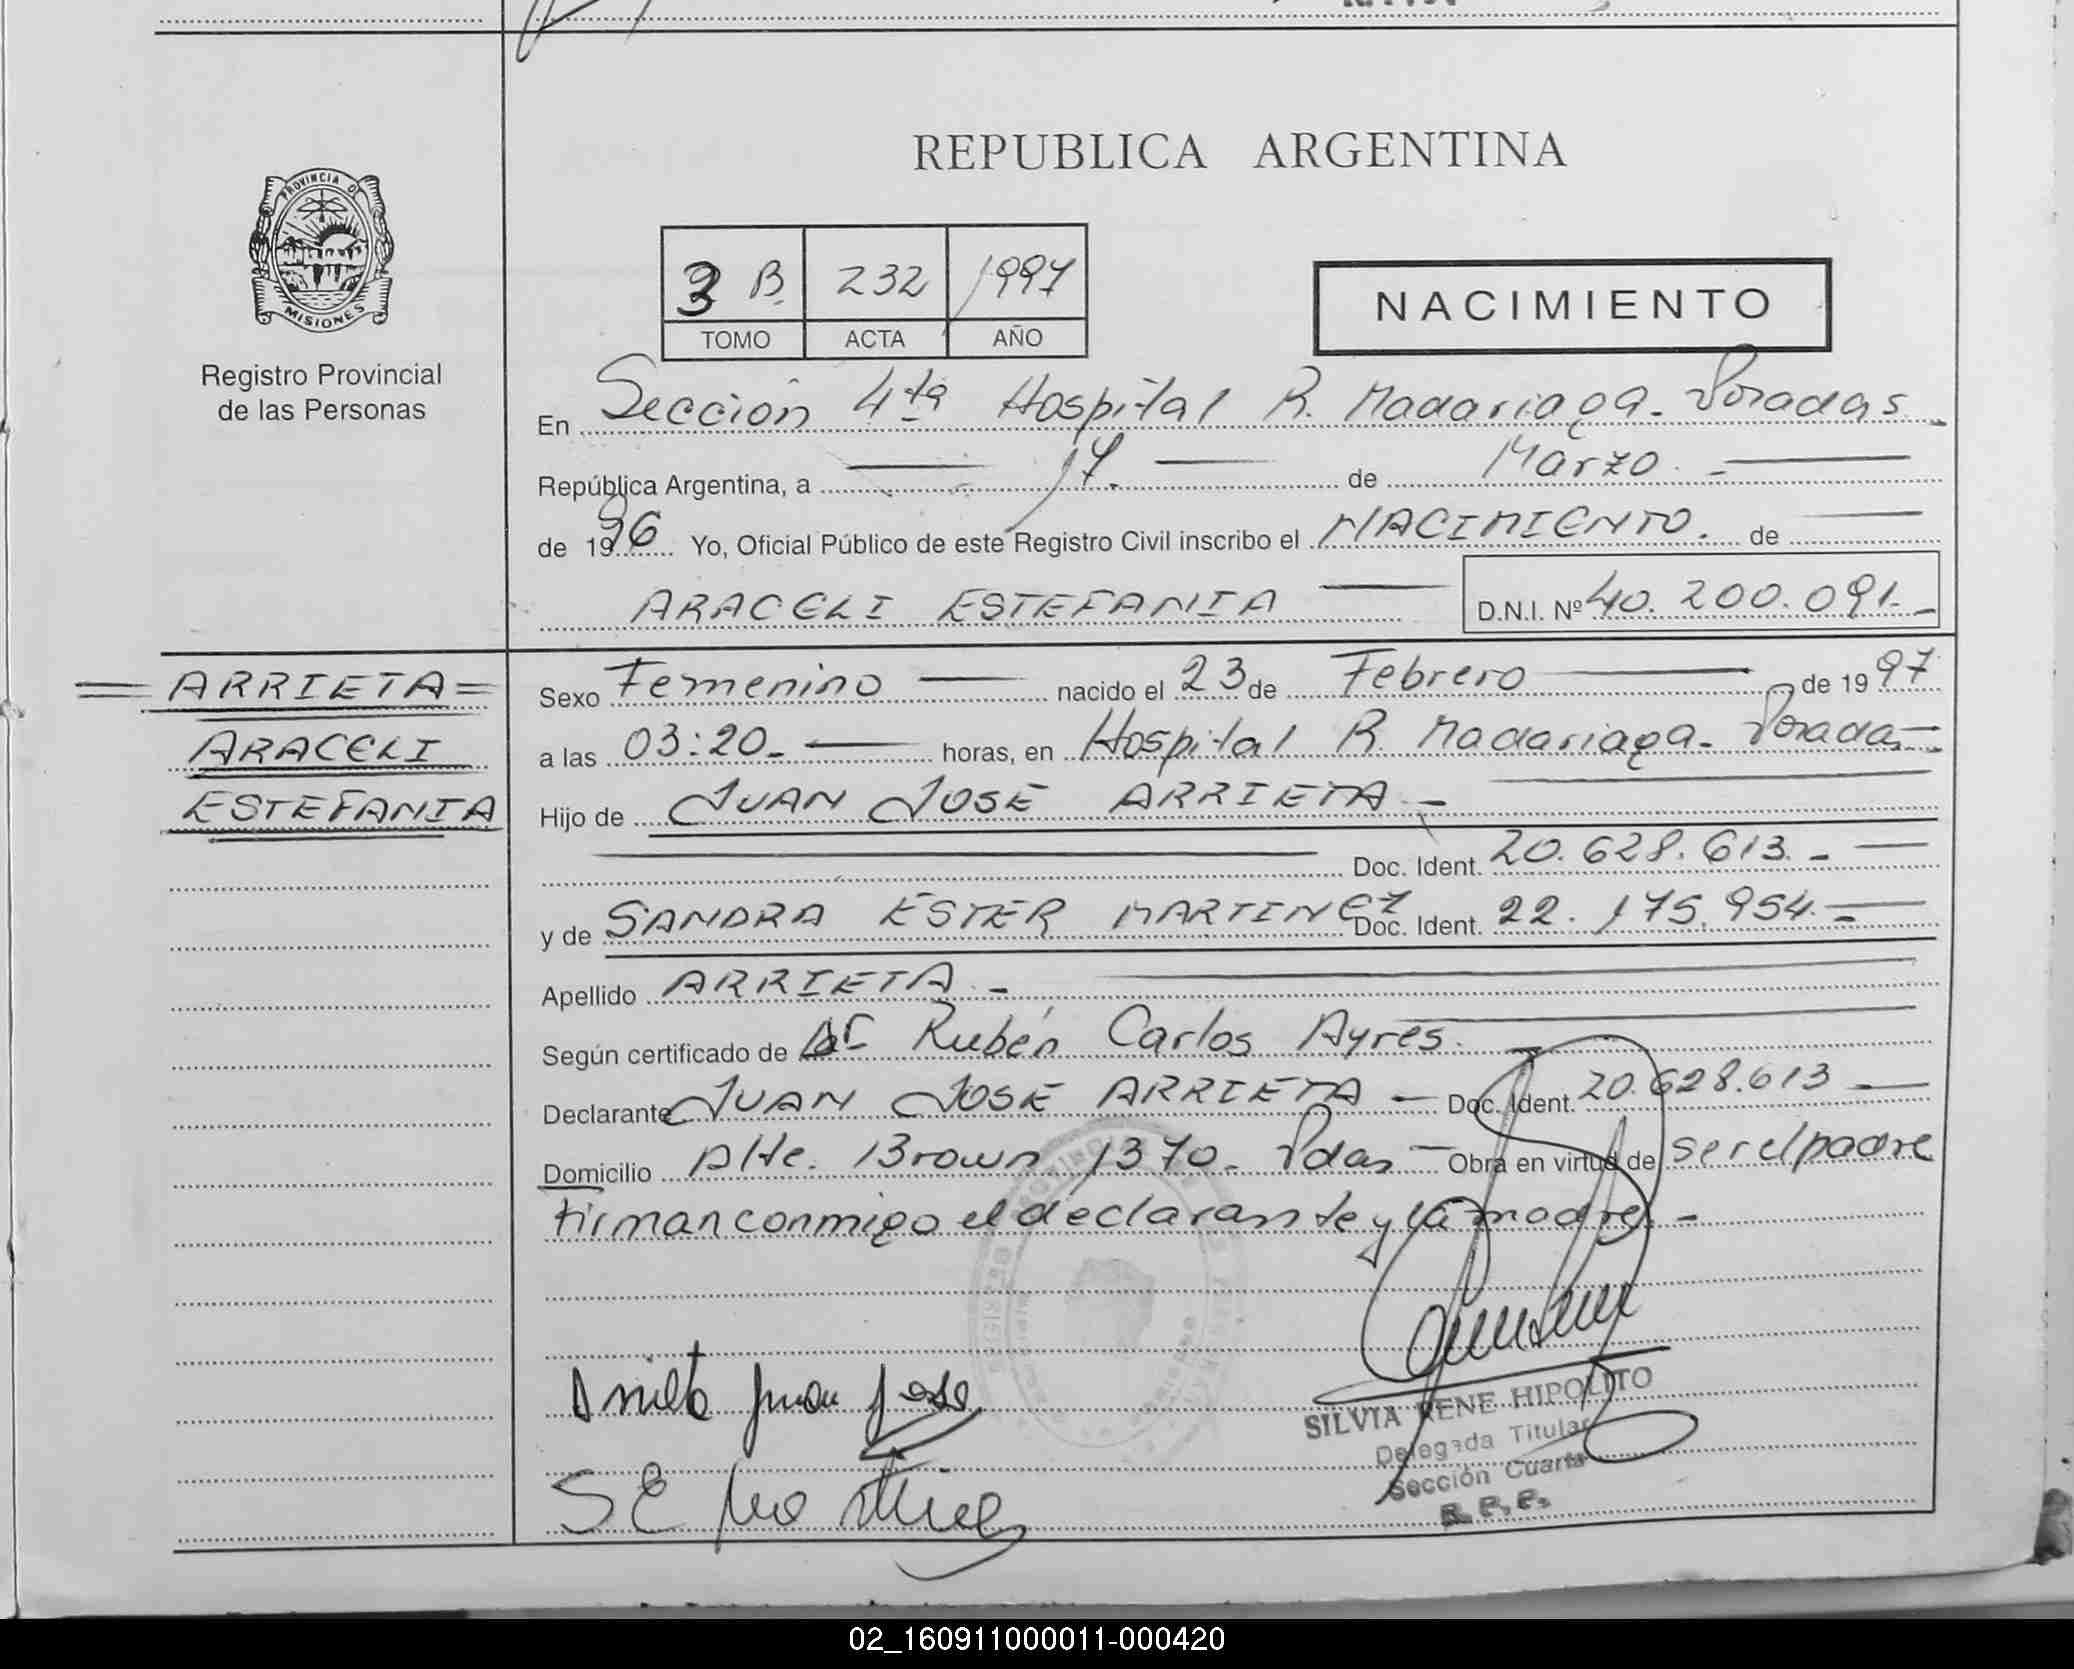 REPUBLICA ARGENTINA
PROVINCIA DE
MISIONES
Registro Provincial
de las Personas
3 B. 232 1997
TOMO ACTA AÑO
NACIMIENTO
En Sección 4ta Hospital R. Madariaga - Posadas
República Argentina, a 17. de Marzo.
de 1996 Yo, Oficial Público de este Registro Civil inscribo el NACIMIENTO. de
ARACELI ESTEFANIA D.N.I. Nº 40.200.091.-
= ARRIETA =
ARACELI
ESTEFANIA
Sexo Femenino nacido el 23 de Febrero de 1997
a las 03:20.- horas, en Hospital R. Madariaga - Posadas
Hijo de JUAN JOSE ARRIETA.-
Doc. Ident. 20.628.613.-
y de SANDRA ESTER MARTINEZ Doc. Ident. 22.175.954.-
Apellido ARRIETA.-
Según certificado de Dr Rubén Carlos Ayres.
Declarante JUAN JOSE ARRIETA - Doc. Ident. 20.628.613
Domicilio Alte. Brown 1370. Pdas - Obra en virtud de ser el padre
firman conmigo el declarante y la madre.-
Arrieta Juan Jose
SILVIA RENE HIPOLITO
Delegada Titular
Sección Cuarta
R. P. P.
S E Martinez
02_160911000011-000420